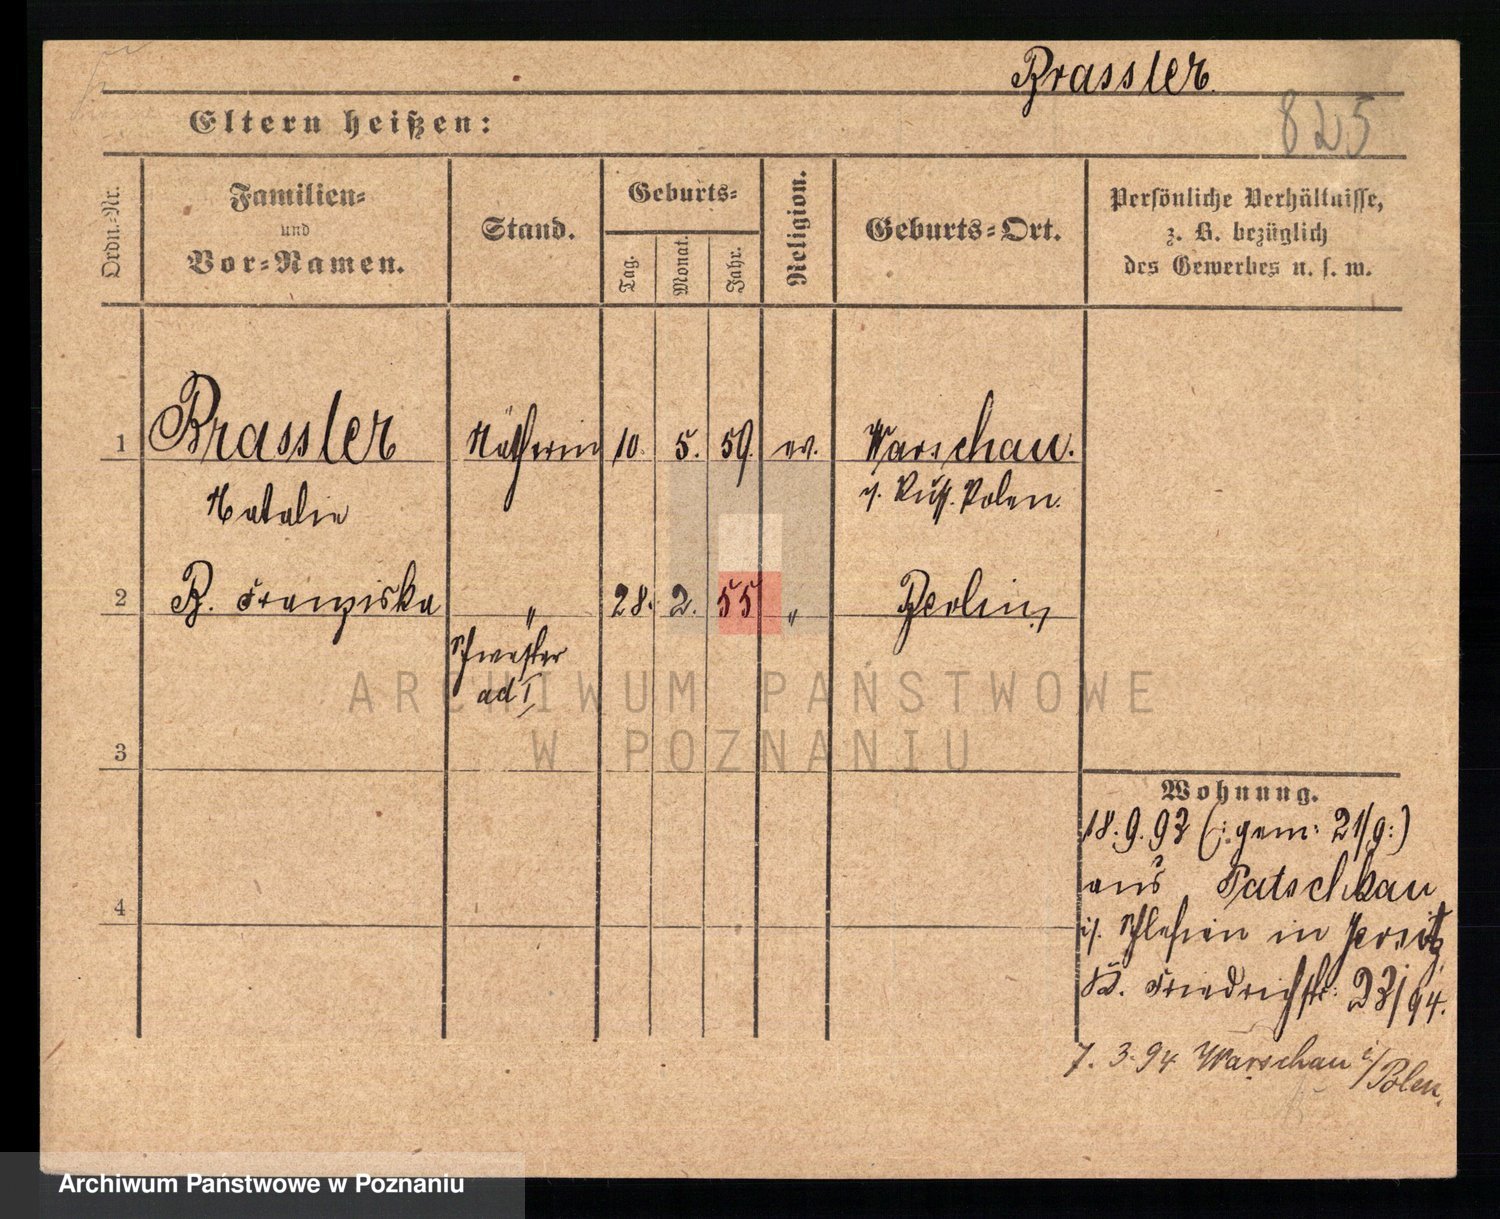 Brassler.
825
Eltern heißen:
Ordn.-Nr.
Familien-
und
Vor-Namen.
Stand.
Geburts-
Tag.
Monat.
Jahr.
Religion.
Geburts-Ort.
Persönliche Verhältnisse,
z. B. bezüglich
des Gewerbes u. s. w.
1 Brassler Nätherin 10. 5. 59. ev. Warschau.
Natalie i/. Russ. Polen.
2 B. Franziska " 28. 2. 55 " Berlin.
Schwester
ad I
ARCHIWUM PAŃSTWOWE
W POZNANIU
3
4
Wohnung.
18.9.93 (: gem: 21/9:)
aus Patschkau
i/. Schlesien in Jersitz
Kl. Friedrichstr: 23/94.
7. 3. 94 Warschau i/Polen.
Archiwum Państwowe w Poznaniu